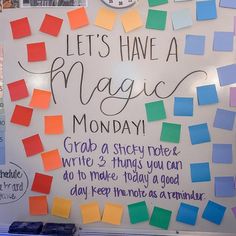 LET'S HAVE A
Magic
MONDAY!
Grab a sticky note &
write 3 things you can
do to make today a good
day. Keep the note as a reminder.